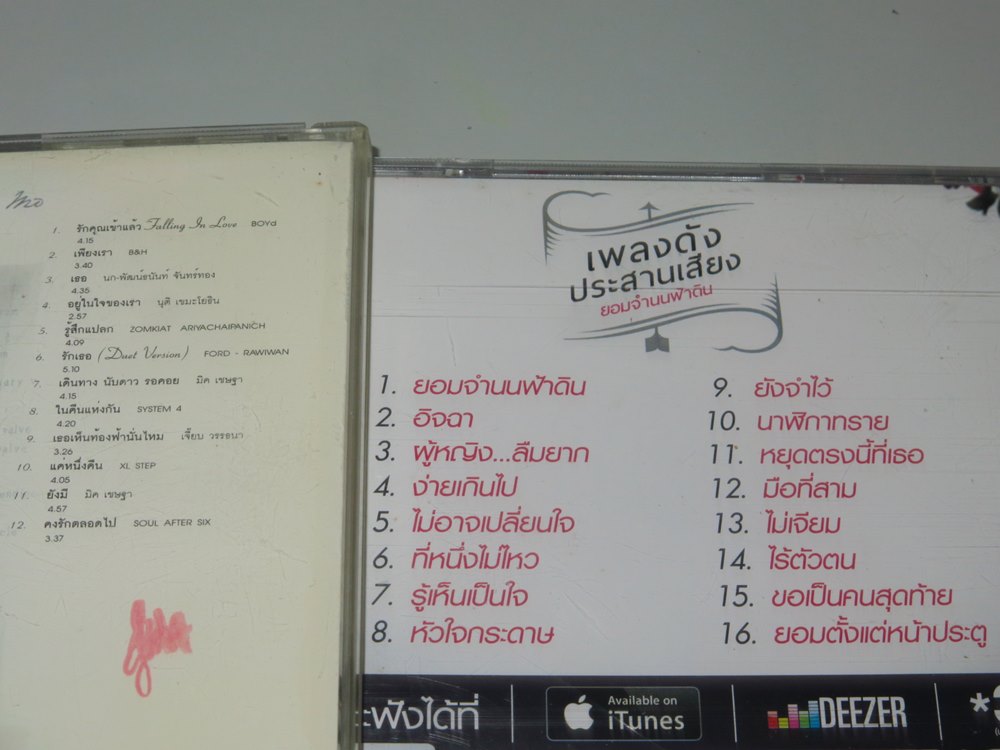 1. รักคุณเข้าแล้ว Falling In Love BOYd
4.15
2. เพียงเรา B&H
3.40
3. เธอ นก-พัฒน์ธนันท์ จันทร์ทอง
4.35
4. อยู่ในใจของเรา นุติ เขมะโยธิน
2.57
5. รู้สึกแปลก ZOMKIAT ARIYACHAIPANICH
4.09
6. รักเธอ (Duet Version) FORD - RAWIWAN
5.10
7. เดินทาง นับดาว รอคอย มิค เชษฐา
4.15
8. ในคืนแห่งกัน SYSTEM 4
4.20
9. เธอเห็นท้องฟ้านั่นไหม เจี๊ยบ วรรธนา
3.26
10. แค่หนึ่งคืน XL STEP
4.05
11. ยังมี มิค เชษฐา
4.57
12. คงรักตลอดไป SOUL AFTER SIX
3.37
เพลงดัง
ประสานเสียง
ยอมจำนนฟ้าดิน
1. ยอมจำนนฟ้าดิน
2. อิจฉา
3. ผู้หญิง...ลืมยาก
4. ง่ายเกินไป
5. ไม่อาจเปลี่ยนใจ
6. ที่หนึ่งไม่ไหว
7. รู้เห็นเป็นใจ
8. หัวใจกระดาษ
9. ยังจำไว้
10. นาฬิกาทราย
11. หยุดตรงนี้ที่เธอ
12. มือที่สาม
13. ไม่เจียม
14. ไร้ตัวตน
15. ขอเป็นคนสุดท้าย
16. ยอมตั้งแต่หน้าประตู
ะฟังได้ที่
Available on
iTunes
DEEZER